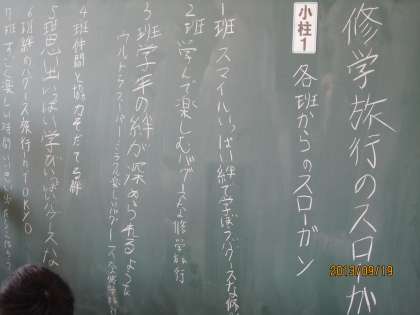 修学旅行のスローガ
小柱1
各班からのスローガン
1班 スマイルいっぱい絆で学ぼうグースな修
2班 学んで楽しむバグースな修学旅行
3班 学年の絆が深められるような
ウルトラスーパーミラクル楽しい
4班 仲間と協力
5班 思い出いっぱい学びいっぱいグースな
6班 絆のバグース旅行 in TOKYO
7班 すごく楽しい時間
2013/09/19